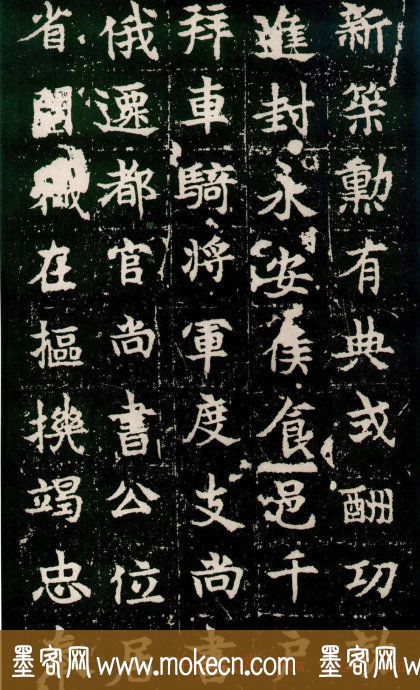 新築勳有典式酬功
進封永安侯食邑千
拜車騎將軍度支尚書
俄遷都官尚書公位
省在樞機竭忠
墨客网 www.mokecn.com 墨客网